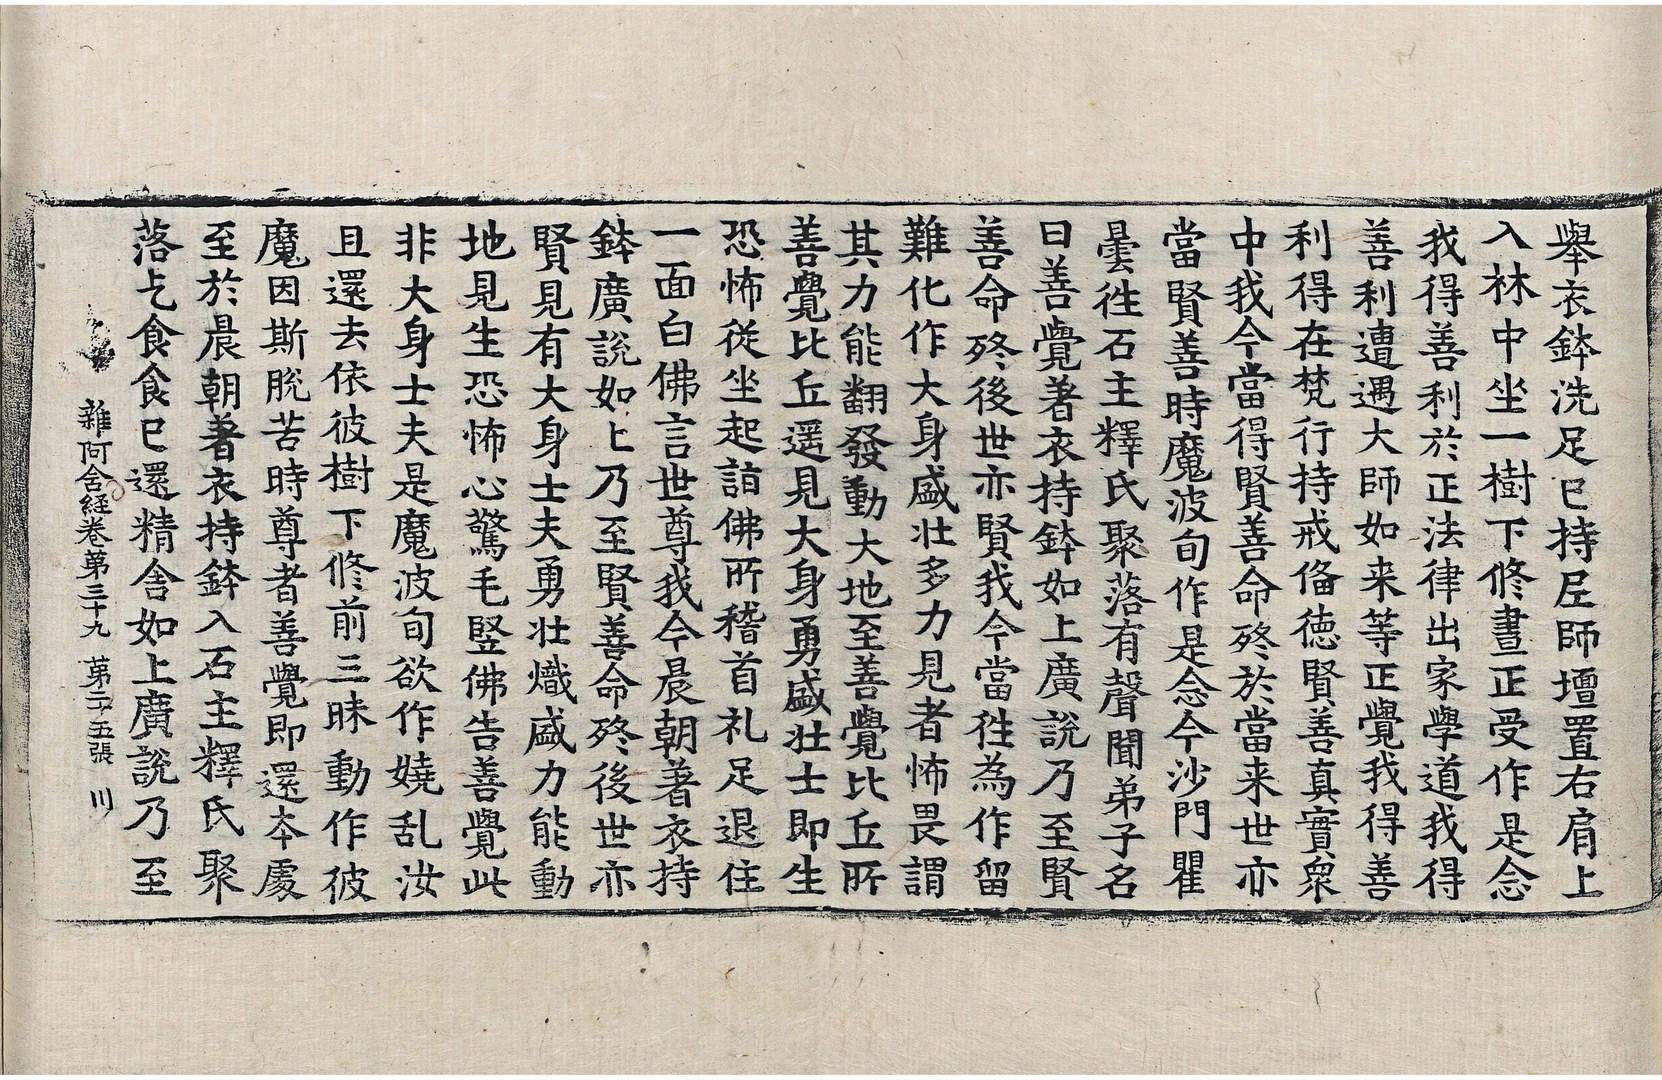 舉衣鉢洗足已持尼師壇置右肩上
入林中坐一樹下修晝正受作是念
我得善利於正法律出家學道我得
善利遭遇大師如来等正覺我得善
利得在梵行持戒俻德賢善真實衆
中我今當得賢善命終於當来世亦
當賢善時魔波旬作是念今沙門瞿
曇住石主釋氏聚落有聲聞弟子名
曰善覺著衣持鉢如上廣說乃至賢
善命終後世亦賢我今當往為作留
難化作大身盛壮多力見者怖畏謂
其力能翻發動大地至善覺比丘所
善覺比丘遥見大身勇盛壮士即生
恐怖從坐起詣佛所稽首礼足退住
一面白佛言世尊我今晨朝著衣持
鉢廣說如上乃至賢善命終後世亦
賢見有大身士夫勇壮熾盛力能動
地見生恐怖心驚毛竪佛告善覺此
非大身士夫是魔波旬欲作嬈乱汝
且還去依彼樹下修前三昧動作彼
魔因斯脫苦時尊者善覺即還本處
至於晨朝著衣持鉢入石主釋氏聚
落乞食食已還精舍如上廣說乃至
雜阿含経卷第三十九 第二十五張 川